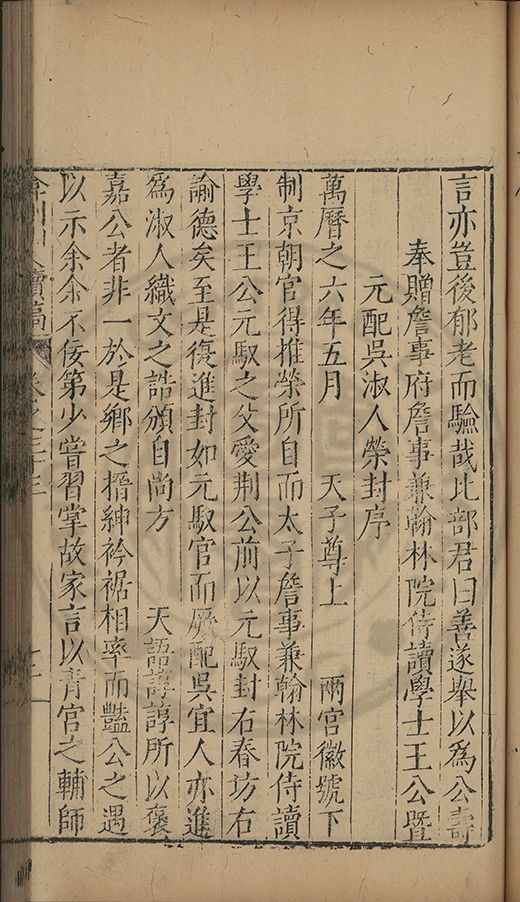 言亦豈後郁老而驗哉比部君曰善遂舉以爲公壽
奉贈詹事府詹事兼翰林院侍讀學士王公曁
元配吳淑人榮封序
萬曆之六年五月 天子尊上 兩宮徽號下
制京朝官得推榮所自而太子詹事兼翰林院侍讀
學士王公元馭之父愛荆公前以元馭封右春坊右
諭德矣至是復進封如元馭官而厥配吳宜人亦進
爲淑人織文之誥頒自尚方 天語諄諄所以褒
嘉公者非一於是鄉之搢紳衿裾相率而豔公之遇
以示余余不佞第少嘗習掌故家言以青宮之輔師
續稿 卷之三十三